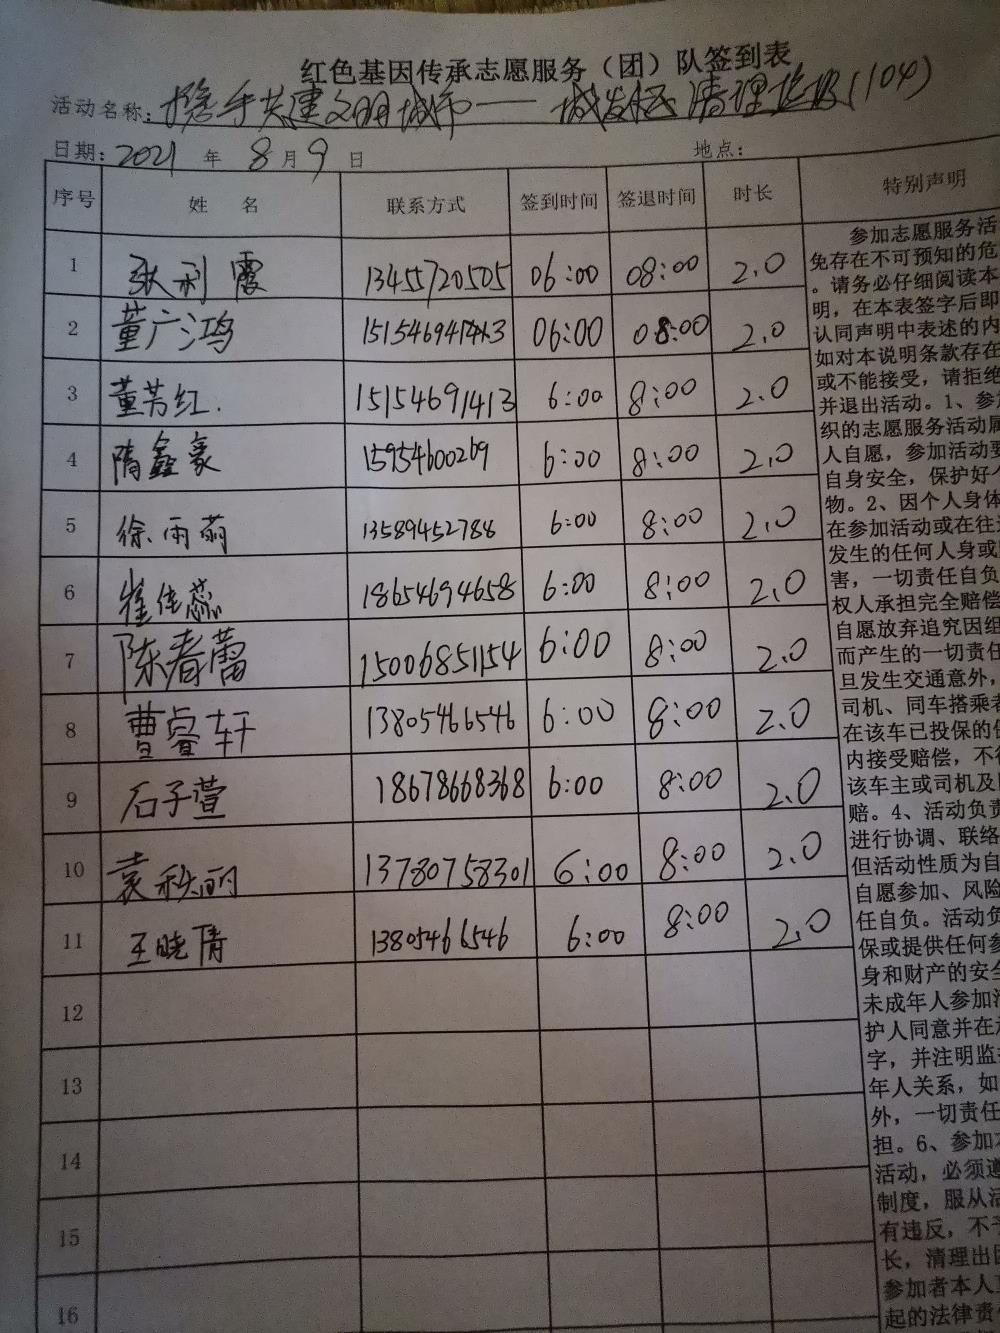 红色基因传承志愿服务（团）队签到表
活动名称：携手共建文明城市——城发 清理垃圾(104)
日期：2021 年 8 月 9 日 地点：
序号 姓 名 联系方式 签到时间 签退时间 时长 特别声明
1 张利霞 13455720505 06:00 08:00 2.0
2 董广鸿 06:00 08:00 2.0
3 董芳红. 15154691413 6:00 8:00 2.0
4 隋鑫豪 15954600269 6:00 8:00 2.0
5 徐雨萌 13589452788 6:00 8:00 2.0
6 崔佳蕊 18654694658 6:00 8:00 2.0
7 陈春蕾 15006851154 6:00 8:00 2.0
8 曹睿轩 13805466546 6:00 8:00 2.0
9 石子萱 18678668368 6:00 8:00 2.0
10 袁秋丽 13780758301 6:00 8:00 2.0
11 王晓倩 13805466546 6:00 8:00 2.0
12
13
14
15
16
参加志愿服务活
免存在不可预知的危
。请务必仔细阅读本
明，在本表签字后即
认同声明中表述的内
如对本说明条款存在
或不能接受，请拒绝
并退出活动。1、参加
织的志愿服务活动属
人自愿，参加活动要
自身安全，保护好个
物。2、因个人身体
在参加活动或在往返
发生的任何人身或
害，一切责任自负
权人承担完全赔偿
自愿放弃追究因组
而产生的一切责任
旦发生交通意外，
司机、同车搭乘者
在该车已投保的保
内接受赔偿，不得
该车主或司机及
赔。4、活动负责
进行协调、联络
但活动性质为自
自愿参加、风险
任自负。活动负
保或提供任何参
身和财产的安全
未成年人参加活
护人同意并在
字，并注明监护
年人关系，如
外，一切责任
担。6、参加本
活动，必须遵
制度，服从活
有违反，不予
长，清理出团
参加者本人
起的法律责任